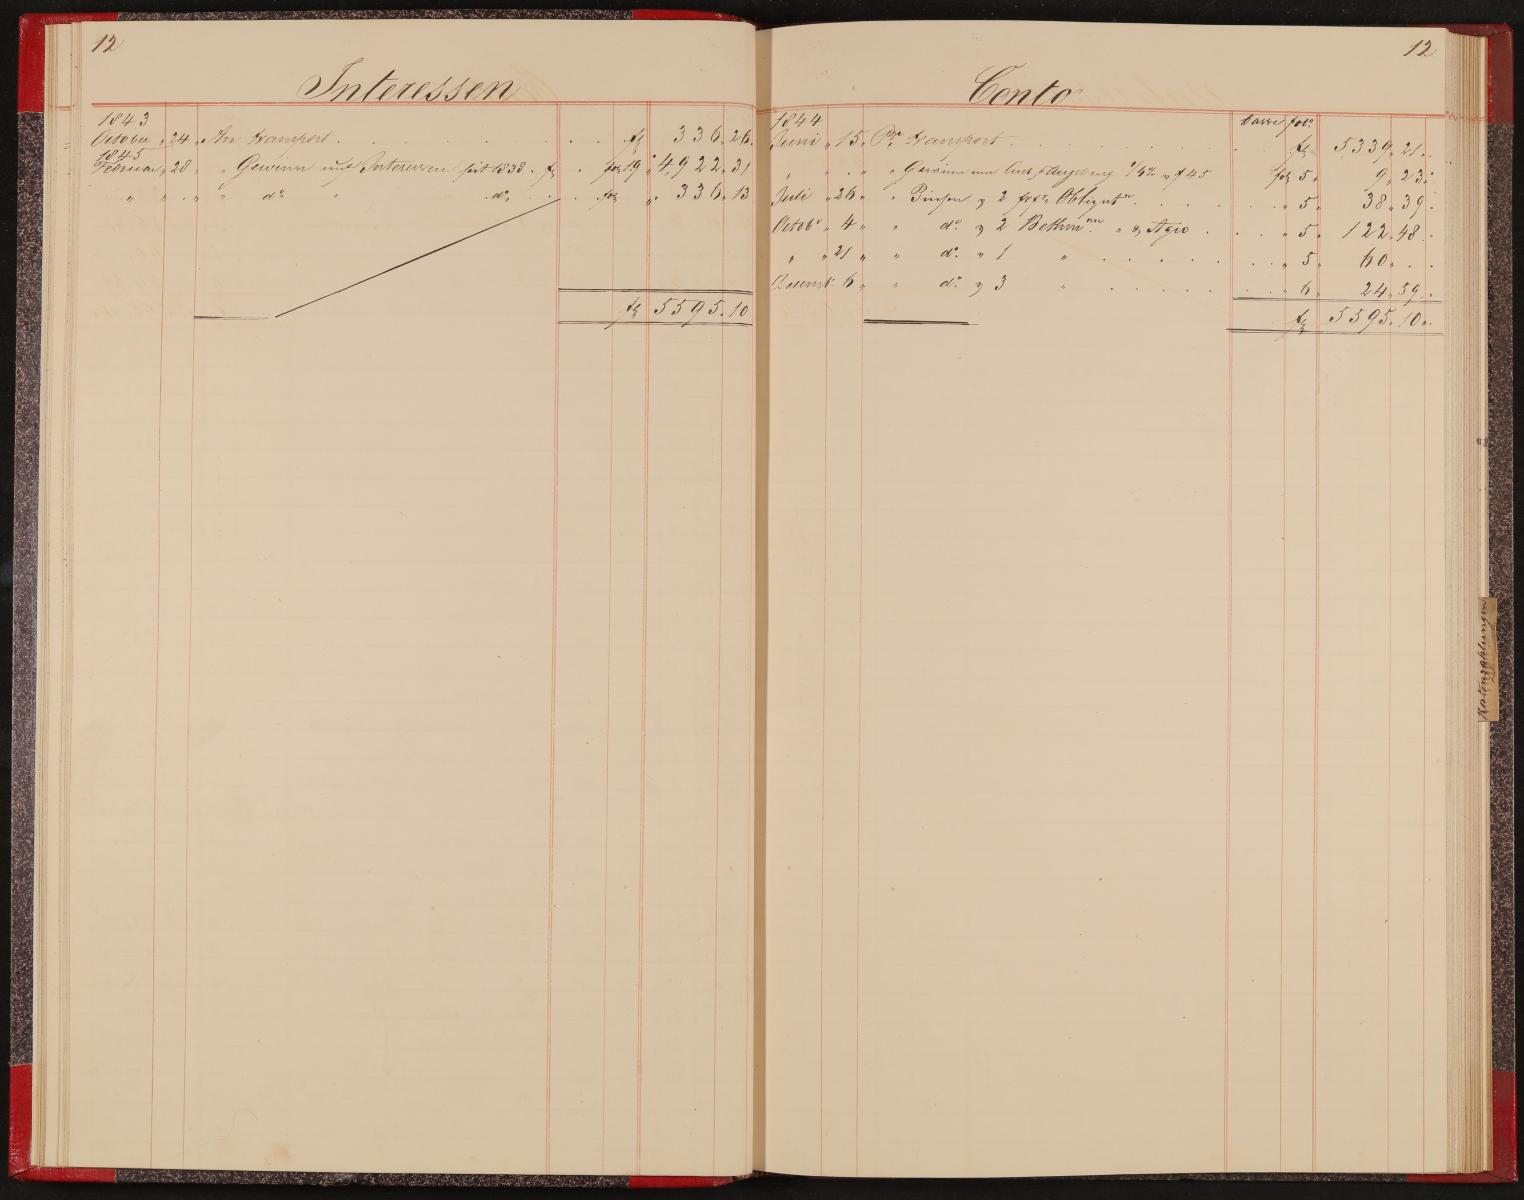 12
Interessen
1843
October " 24 " An Transport . . . . . . . . f 336 " 26.
1845
Februar " 28 " " Gewinn auf Interessen seit 1838 . f . fol 19 " 4,922 " 31
" " . " " " do " do . . . fol " 336 " 13
f 5595. 10
12
Conto
1844 Casse folo
Juni " 15 " Pr Transport . . . . . . . . f 5,339 " 21 "
" " . " " Gewinn am 1/4% " f 45 fol 5 " 9 " 23 "
Juli " 26 " " Zinsen 2 Obligatn . . . . . . " 5 " 38 " 39 "
Octobr " 4 " " do 2 Bethmnn " Agio . . . " 5 " 122 " 48 "
" " 21 " " do " 1 " . . . . . . . " 5 " 60 " . .
Decemb 6 " " do 3 " . . . . . . . " 6 " 24 " 59 "
f 5595 " 10 "